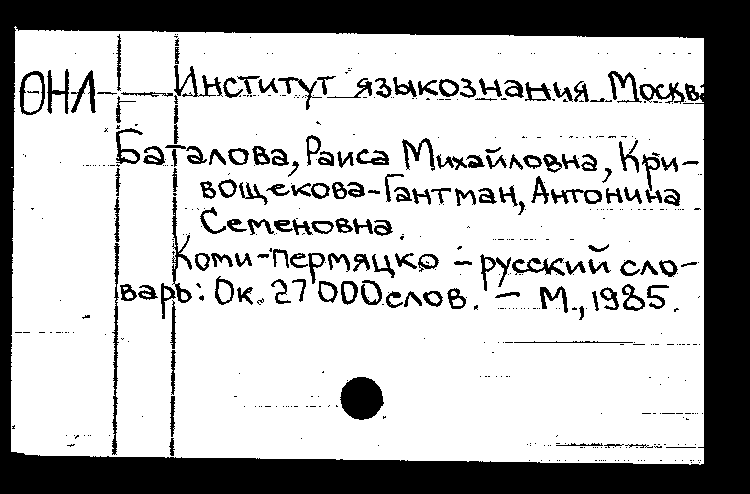 ОНЛ Институт языкознания. Москва
Баталова, Раиса Михайловна, Кри-
вощекова-Гантман, Антонина
Семеновна.
Коми-пермяцко - русский сло-
варь: Ок. 27 000 слов. - М., 1985.